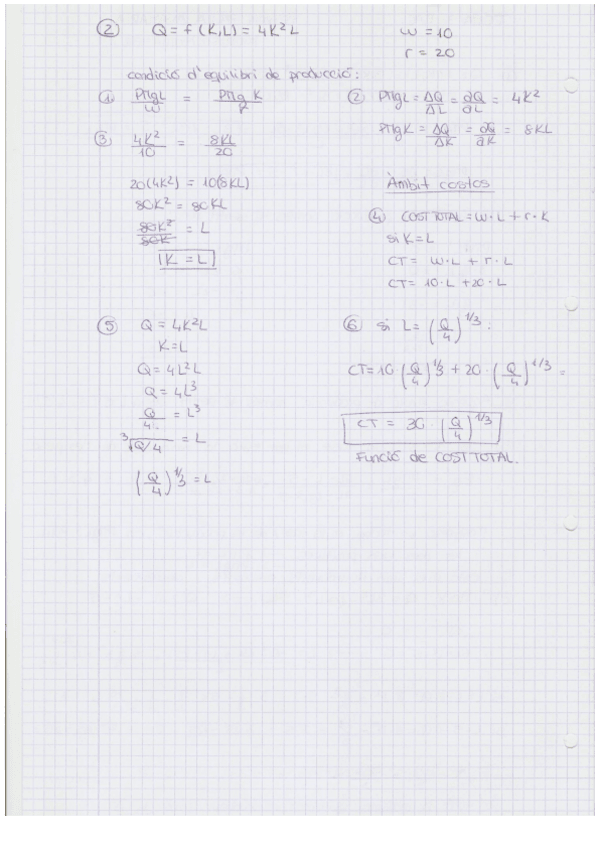 ② Q = f (K,L) = 4K²L
w = 10
r = 20
condició d'equilibri de producció:
① PMgL/w = PMgK/r
② PMgL = ΔQ/ΔL = ∂Q/∂L = 4K²
PMgK = ΔQ/ΔK = ∂Q/∂K = 8KL
③ 4K²/10 = 8KL/20
20(4K²) = 10(8KL)
80K² = 80KL
80K²/80K = L
K = L
Àmbit costos
④ COST TOTAL = w·L + r·K
si K = L
CT = w·L + r·L
CT = 10·L + 20·L
⑤ Q = 4K²L
K = L
Q = 4L²L
Q = 4L³
Q/4 = L³
³√Q/4 = L
(Q/4)^1/3 = L
⑥ si L = (Q/4)^1/3 :
CT = 10·(Q/4)^1/3 + 20·(Q/4)^1/3 =
CT = 30·(Q/4)^1/3
Funció de COST TOTAL.